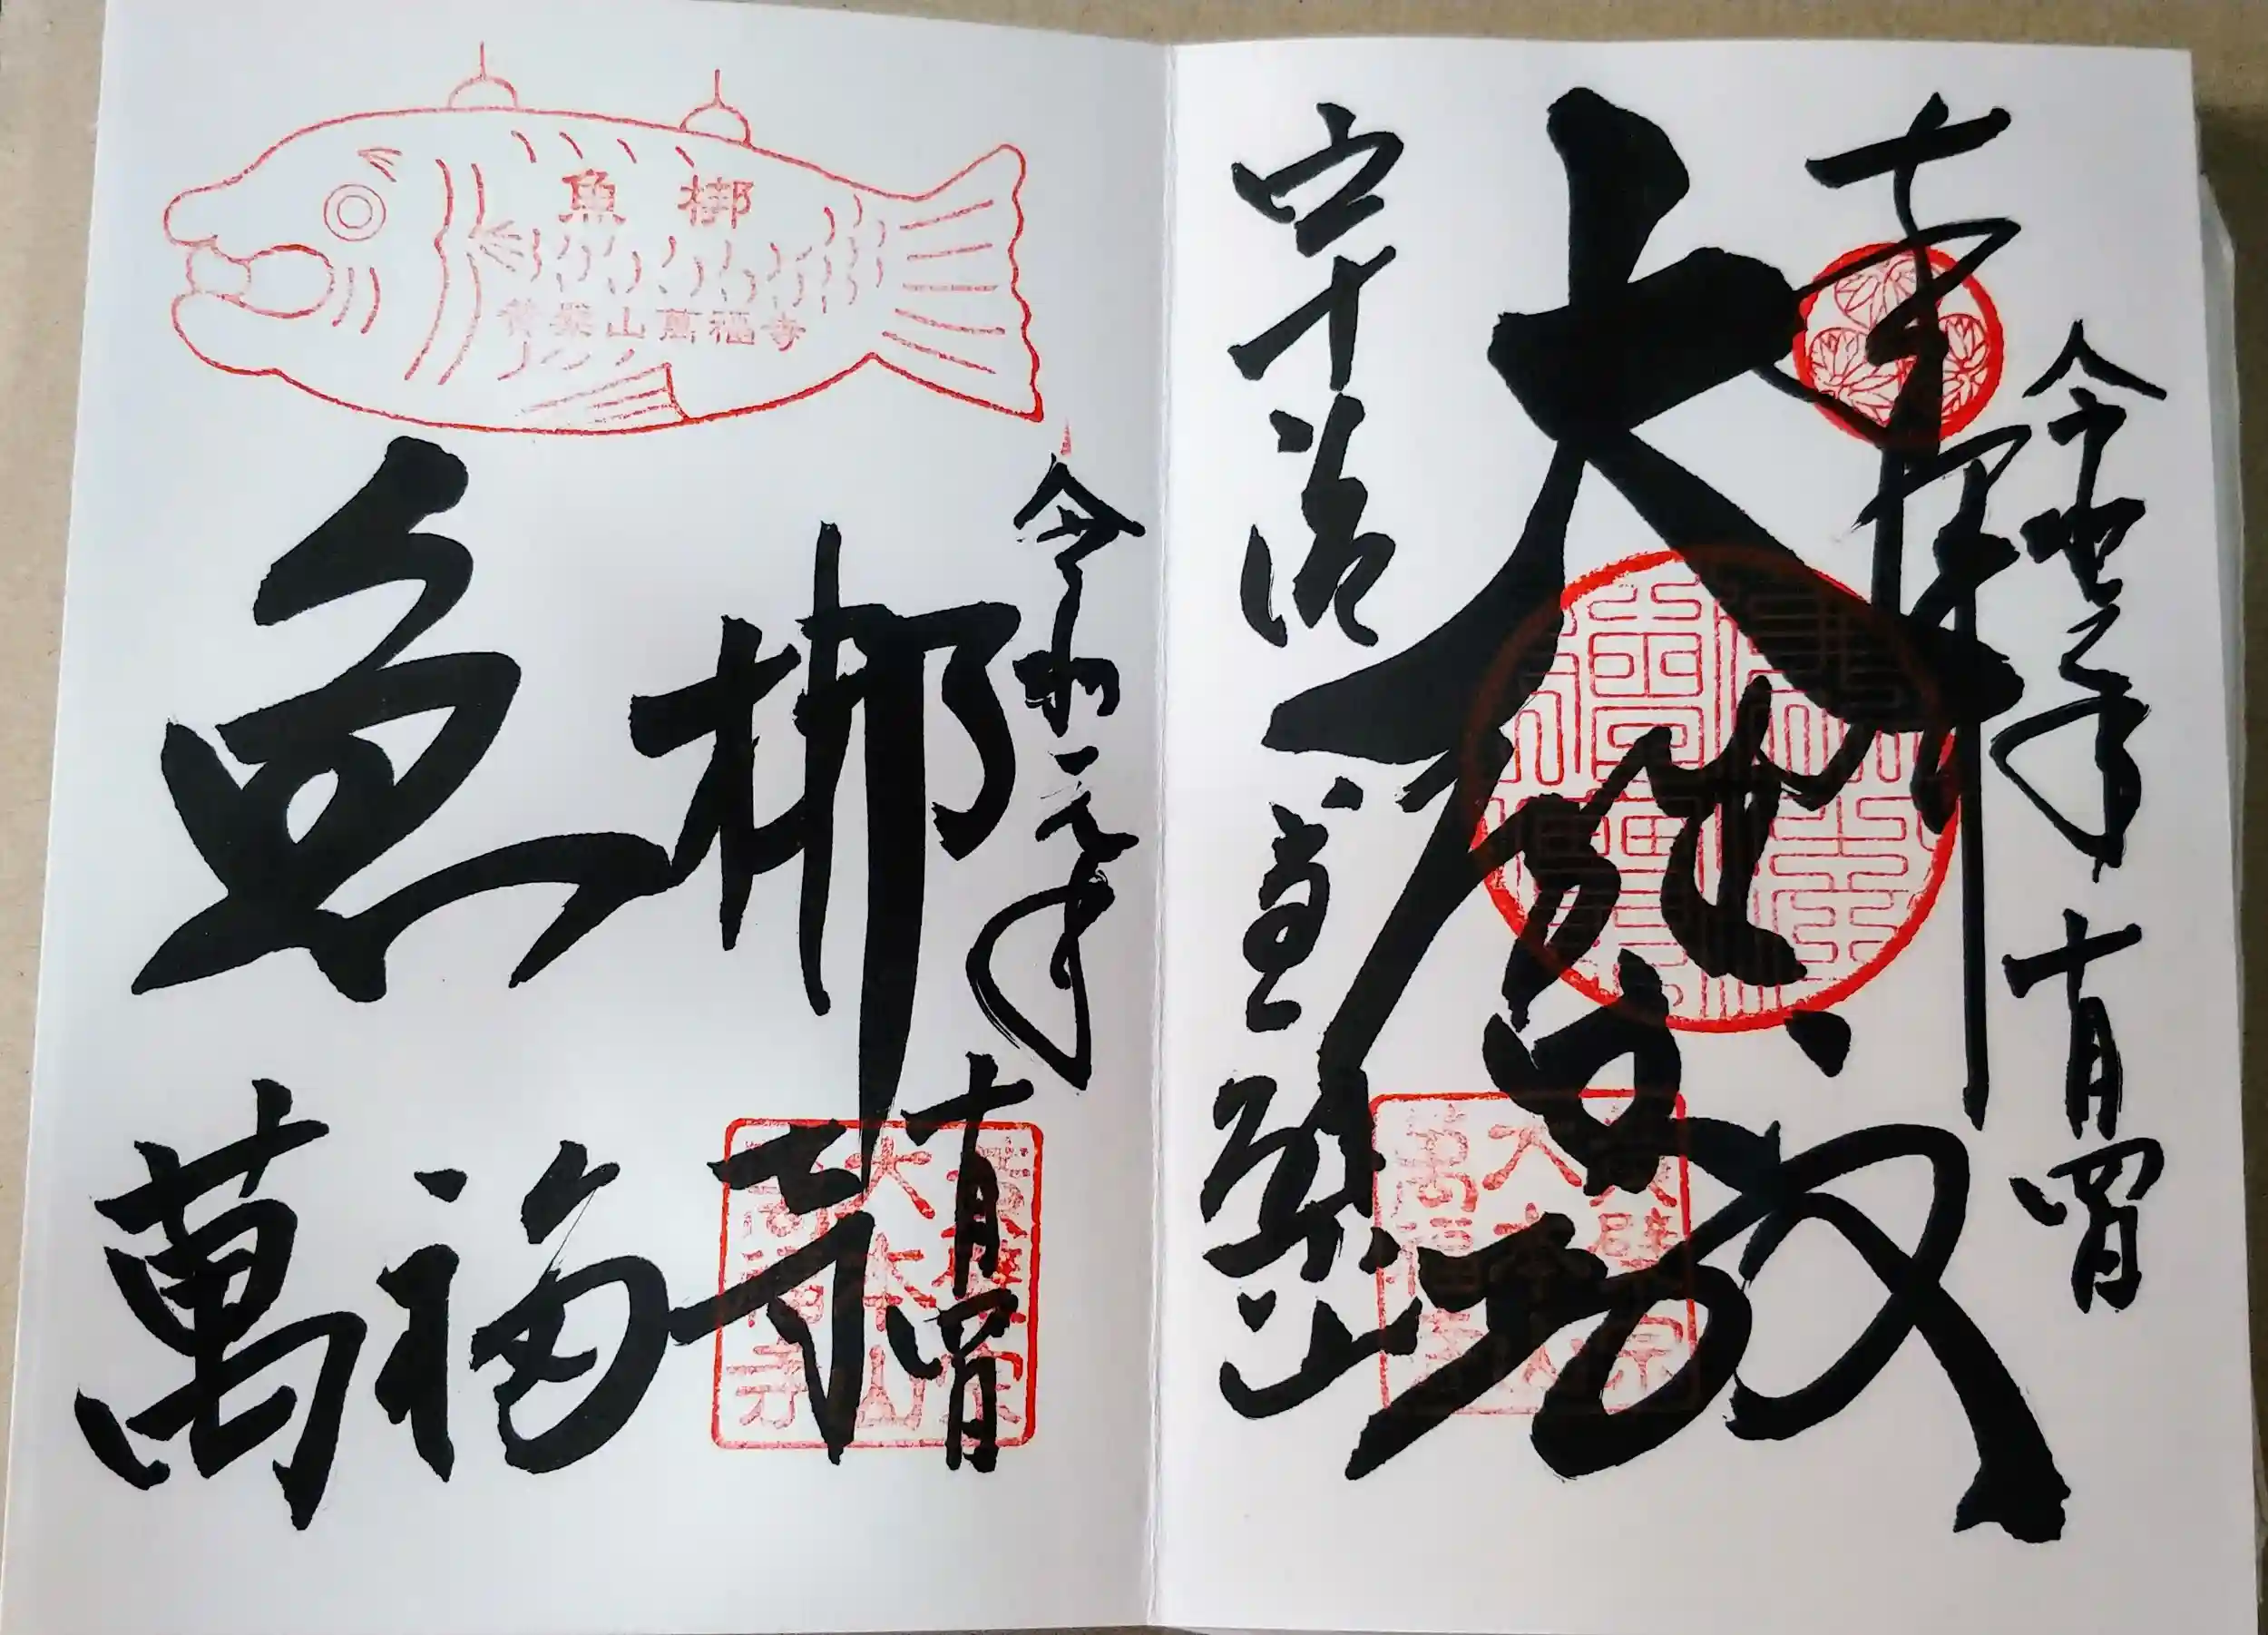 奉拝
令和元年十月四日
大雄寶殿
宇治 黄檗山
黄檗宗
大本山
萬福寺
魚梆
黄檗山萬福寺
令和元年
十月四日
魚梆
萬福寺
黄檗宗
大本山
萬福寺